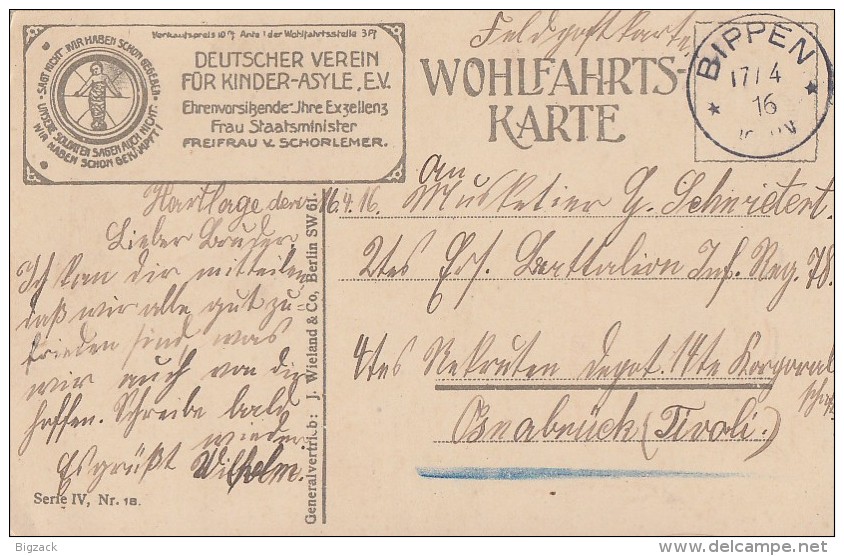 Verkaufspreis 10 ₰ Anteil der Wohlfahrtsstelle 3 ₰
SAGT NICHT: WIR HABEN SCHON GEGEBEN
UNSERE SOLDATEN SAGEN AUCH NICHT:
WIR HABEN SCHON GEKÄMPFT!
DEUTSCHER VEREIN
FÜR KINDER-ASYLE, E.V.
Ehrenvorsitzende: Ihre Exzellenz
Frau Staatsminister
FREIFRAU V. SCHORLEMER.
Feldpostkarte
WOHLFAHRTS-
KARTE
BIPPEN
17/4
16
Hartlage den 16.4.16.
Lieber Bruder.
Ich kan dir mitteilen
daß wir alle gut zu
frieden sind was
wir auch von dir
hoffen. Schreibe bald
wieder
Es grüßt Wilhelm.
Serie IV, Nr. 18.
Generalvertrieb: J. Wieland & Co, Berlin SW 61.
An
Musketier G. Schwietert.
2tes Ers. Battalion Inf. Reg. 78.
4tes Rekruten Depot. 14te Korporal
schaft
Osnabrück (Tivoli.)
Bigzack
delcampe.net